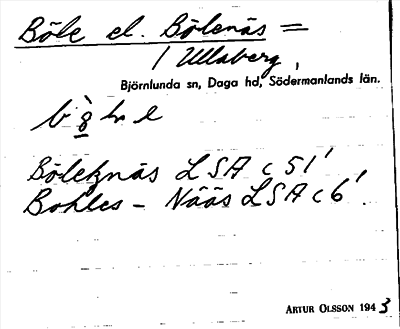 Böle el. Bölenäs =
/ Ullaberg,
Björnlunda sn, Daga hd, Södermanlands län.
Böleknäs LSA c 51'
Bohles - Nääs LSA c 6'.
ARTUR OLSSON 1943